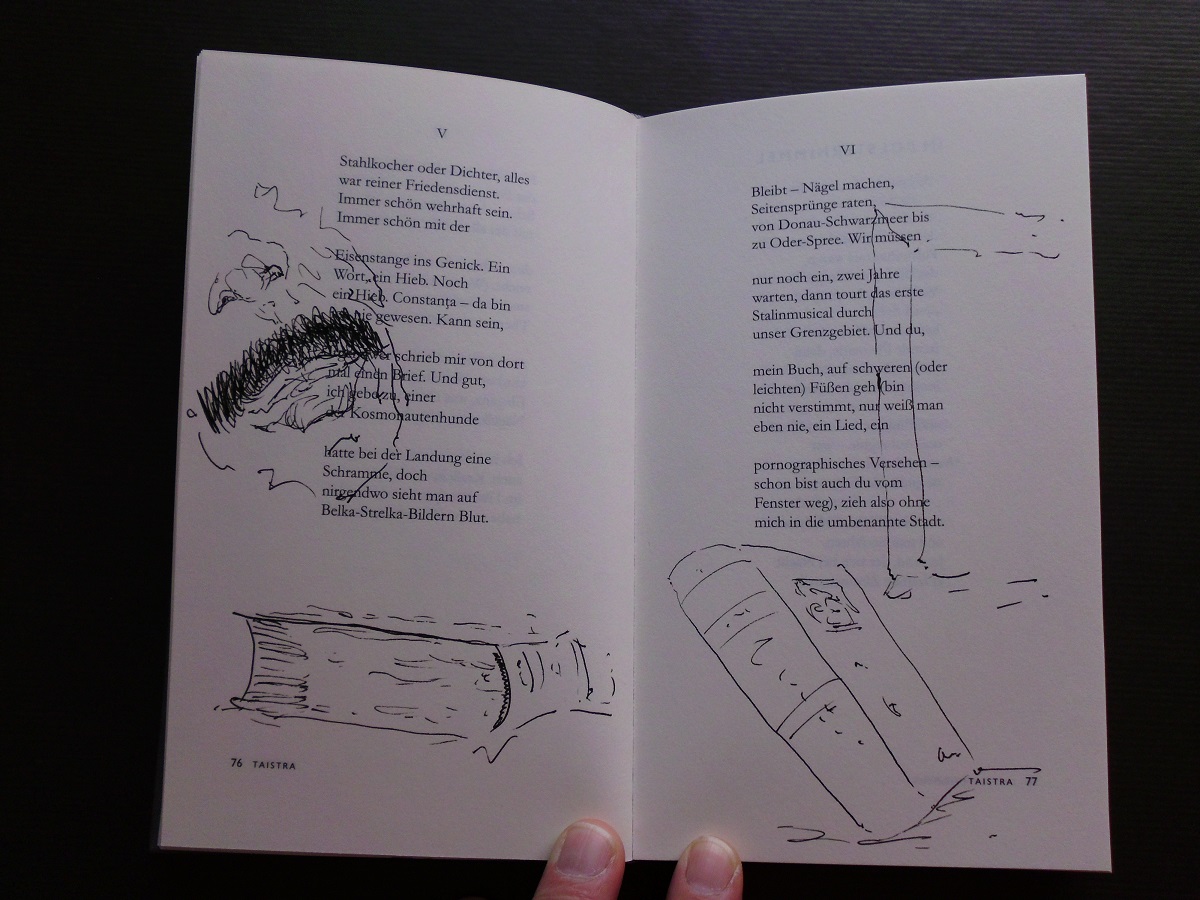 V
Stahlkocher oder Dichter, alles
war reiner Friedensdienst.
Immer schön wehrhaft sein.
Immer schön mit der
Eisenstange ins Genick. Ein
Wort, ein Hieb. Noch
ein Hieb. Constanţa – da bin
nie gewesen. Kann sein,
schrieb mir von dort
mal einen Brief. Und gut,
ich gebe zu, einer
der Kosmonautenhunde
hatte bei der Landung eine
Schramme, doch
nirgendwo sieht man auf
Belka-Strelka-Bildern Blut.
76 TAISTRA
VI
Bleibt – Nägel machen,
Seitensprünge raten,
von Donau-Schwarzmeer bis
zu Oder-Spree. Wir müssen
nur noch ein, zwei Jahre
warten, dann tourt das erste
Stalinmusical durch
unser Grenzgebiet. Und du,
mein Buch, auf schweren (oder
leichten) Füßen geh (bin
nicht verstimmt, nur weiß man
eben nie, ein Lied, ein
pornographisches Versehen –
schon bist auch du vom
Fenster weg), zieh also ohne
mich in die umbenannte Stadt.
TAISTRA 77